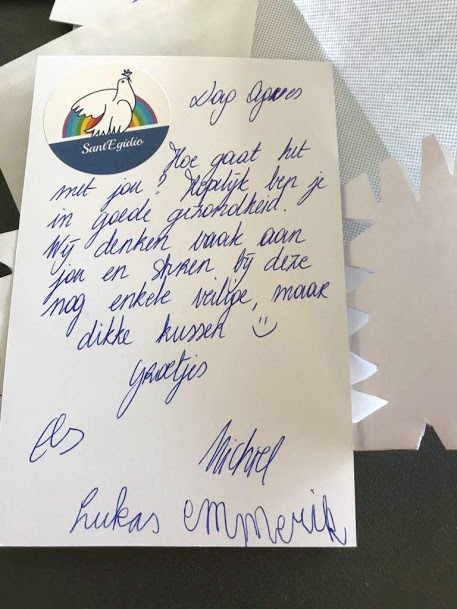 Sant'Egidio
Dag Agnes
Hoe gaat het
met jou? Hopelijk ben je
in goede gezondheid.
Wij denken vaak aan
jou en sturen bij deze
nog enkele veilige, maar
dikke kussen
groetjes
Els
Michiel
Lukas emmerik